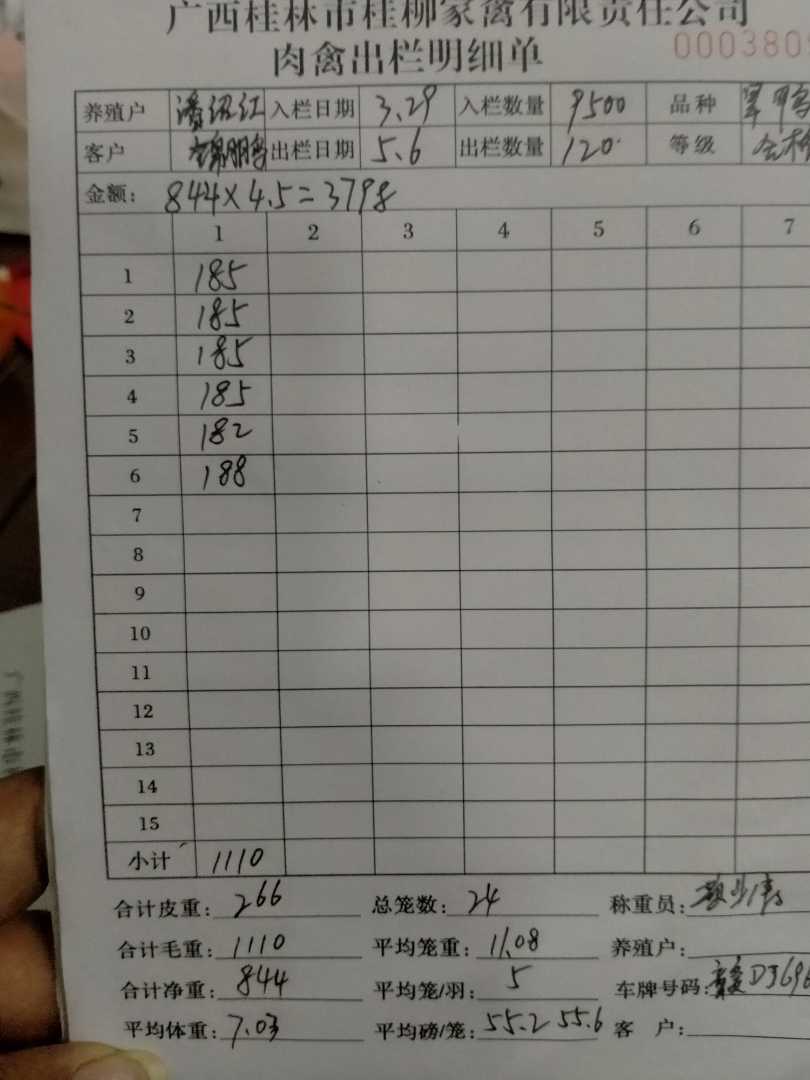 广西桂林市桂柳家禽有限责任公司
肉禽出栏明细单
000380
养殖户 入栏日期 3.29 入栏数量 9500 品种
客户 出栏日期 5.6 出栏数量 120 等级
金额: 844×4.5=3798
1 2 3 4 5 6 7
1 185
2 185
3 185
4 185
5 182
6 188
7
8
9
10
11
12
13
14
15
小计 1110
合计皮重: 266 总笼数: 24 称重员:
合计毛重: 1110 平均笼重: 11.08 养殖户:
合计净重: 844 平均笼/羽: 5 车牌号码:
平均体重: 7.03 平均磅/笼: 55.2 55.6 客 户: